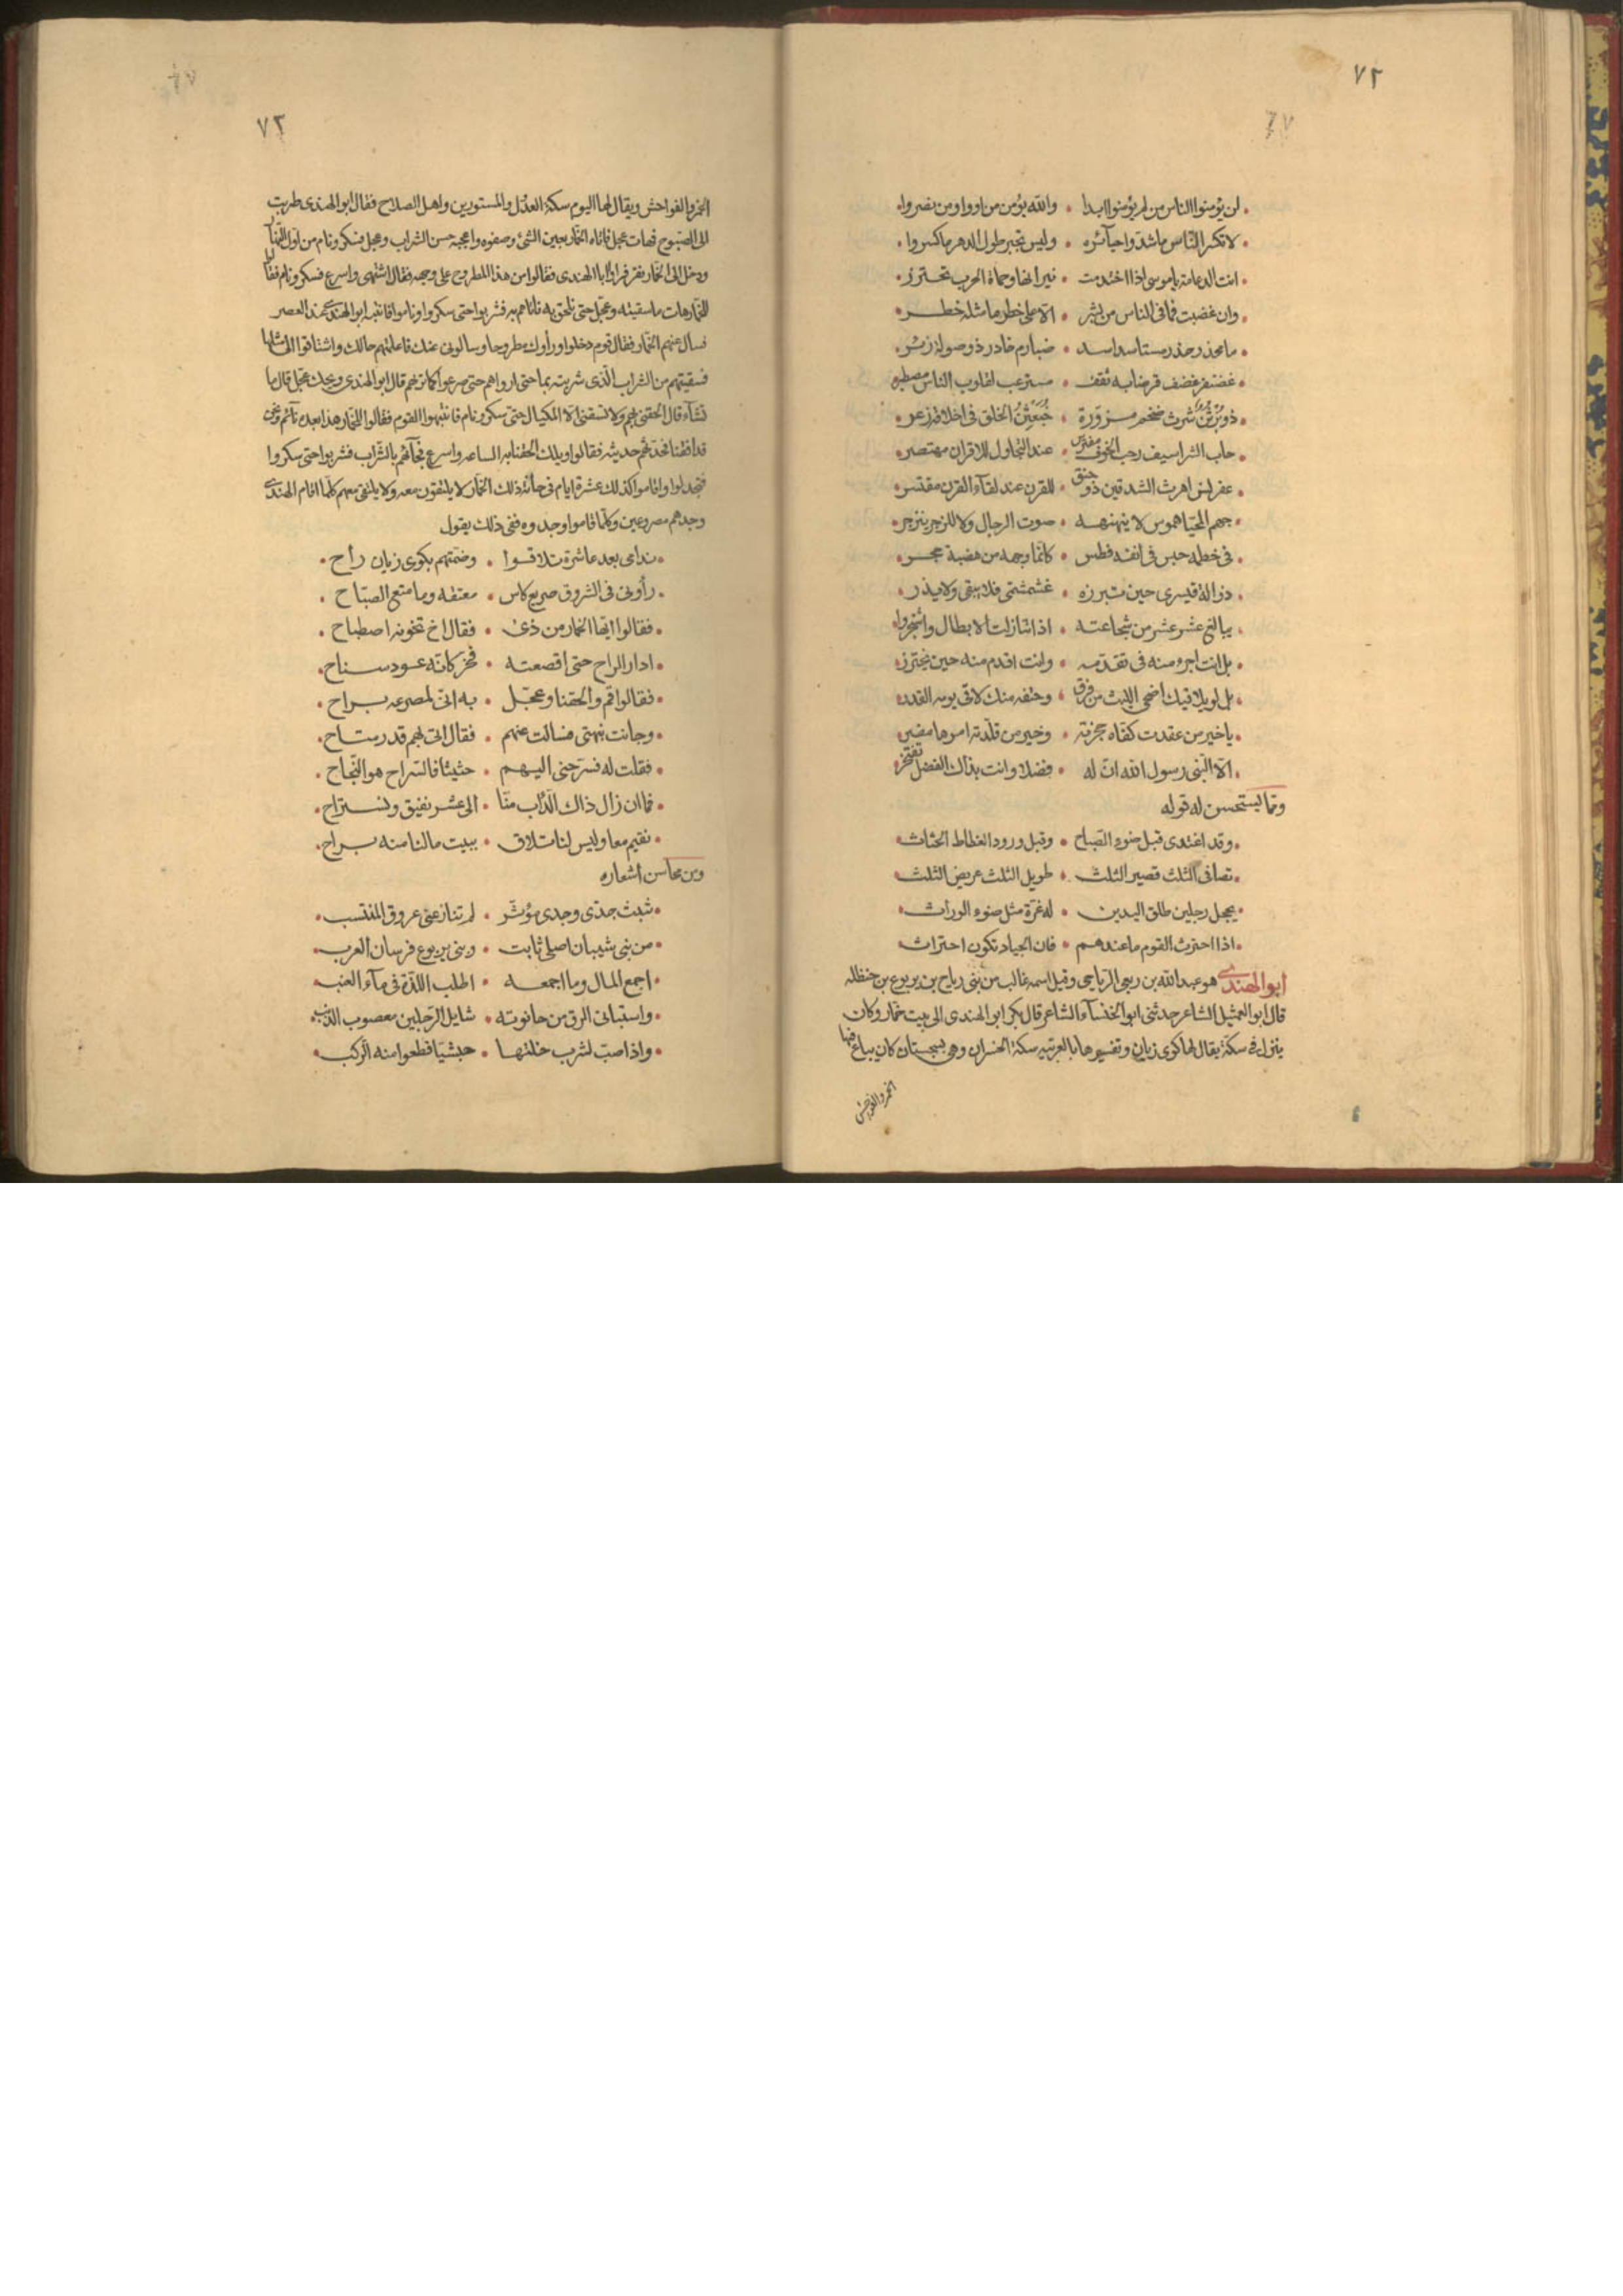 ٧٢
لن يؤمنوا الناس من لم يؤمنوا ابدا • والله يؤمن من اووا ومن نصروا
لا تكسر الناس ما شدوا جبائره • وليس تجبر طول الدهر ما كسروا
انت الدعامة يا موسى اذا احتدمت • نيرانها وحماة الحرب تحترز
وان غضبت فما في الناس من بشر • الا على خطر ما مثله خطر
ما مخدر حذر مستأسد اسد • ضبارم خادر ذو صولة زئر
غضنفر غضف قرضابه ثقف • مسترعب لقلوب الناس مصطبر
ذو برثن شرث ضخم مزوره • خبعثن الخلق في اخلاقه زعر
جاب الشراسيف رحب الجوف مفترس • عند التجاول للاقران مهتصر
عفرنس اهرت الشدقين ذو حنق • للقرن عند لقآء القرن مقتسر
جهم المحيا هموس لا ينهنهه • صوت الرجال ولا للزجر ينزجر
في خطمه خنس في انفه فطس • كانما وجهه من هضبة حجر
يبالغ عشر عشر من شجاعته • اذا تنازلت الابطال واشتجروا
بل انت اجرء منه في تقدمه • وانت اقدم منه حين يجترز
بل لو يلاقيك اضحى الليث من فرق • وحتفه منك لاقى يومه القدر
يا خير من عقدت كفاه حجزته • وخير من قلدته امرها مضر
الا النبي رسول الله ان له • فضلا وانت بذاك الفضل تفتخر
ومما يستحسن له قوله
وقد اغتدى قبل ضوء الصباح • وقبل ورود الغطاط الحثاث
بصافي الثلث قصير الثلث • طويل الثلث عريض الثلث
يحجل رجلين طلق اليدين • له غرة مثل ضوء الوراث
اذا احترث القوم ما عندهم • فان الجياد تكون احتراث
ابو الهندى هو عبد الله بن ربعي الرياحي وقيل اسمه غالب من بني رياح بن يربوع بن حنظله
قال ابو العميثل الشاعر حدثني ابو الخنسآء الشاعر قال بكر ابو الهندى الى بيت خمار وكان
ينزل في سكة يقال لها كوى زيان وتفسيرها بالعربيه سكة الخسران وهي بسجستان كان يباع فيها
الخمر والفواحش
٧٣
الخمر والفواحش ويقال لها اليوم سكة العدل والمستورين واهل الصلاح فقال ابو الهندى طربت
الى الصبوح فهات عجل فاتاه الخمار بعين الشئ وصفوه واعجبه حسن الشراب وعجل فسكر ونام من اول النهار
ودخل الى الخمار نفر فراوا ابا الهندى فقالوا من هذا المطروح على وجهه فقال اشتهى واسرع فسكر ونام فقالوا
للخمار هات ما سقيته وعجل حتى نلحق به فاتاهم به فشربوا حتى سكروا وناموا فانتبه ابو الهندى عند العصر
فسال عنهم الخمار فقال قوم دخلوا وراوك مطروحا وسالوني عنك فاعلمتهم حالك واشتاقوا الى مثلها
فسقيتهم من الشراب الذى شربته بما حتى ارواهم حتى صرعوا كما ترهم قال ابو الهندى ويحك عجل قال ما
تشآء قال الحقني بهم ولا تسقني الا المكيال حتى سكر ونام فانتبهوا القوم فقالوا للخمار هذا بعد نآئم ونحن
قد افقنا فحدثهم حديثه فقالوا ويلك الحقنا به الساعه واسرع فجآئهم بالشراب فشربوا حتى سكروا
فتجدلوا واقاموا كذلك عشرة ايام في حانة ذلك الخمار لا يلتقون معه ولا يلتقي معهم كلما اقام الهندى
وجدهم مصروعين وكلما قاموا وجدوه ففي ذلك يقول
ندامى بعد عاشرة تلاقوا • وضمتهم بكوى زيان راح
رأوني في الشروق صريع كاس • معتقه وما متع الصباح
فقالوا ايها الخمار من ذى • فقال اخ تخونه اصطباح
ادار الراح حتى اقصعته • فخر كانه عود سناح
فقالوا قم والحقنا وعجل • به انى لمصرعه براح
وحانت نبهتى فسالت عنهم • فقال اتى بهم قدر متاح
فقلت له فسرحني اليهم • حثيثا فالسراح هو النجاح
فما ان زال ذاك الداب منا • الى عشر نفيق ونستراح
نقيم معا وليس لنا تلاق • ببيت ما لنا منه براح
ومن محاسن اشعاره
شبث جدى وجدى مؤثر • لم تنازعني عروق المنتسب
من بني شيبان اصلي ثابت • وبني يربوع فرسان العرب
اجمع المال وما اجمعه • اطلب اللذة في مآء العنب
واستبائي الزق من حانوته • شايل الرجلين معصوب الذنب
واذا صب لشرب خلتها • حبشيا قطعوا منه الركب